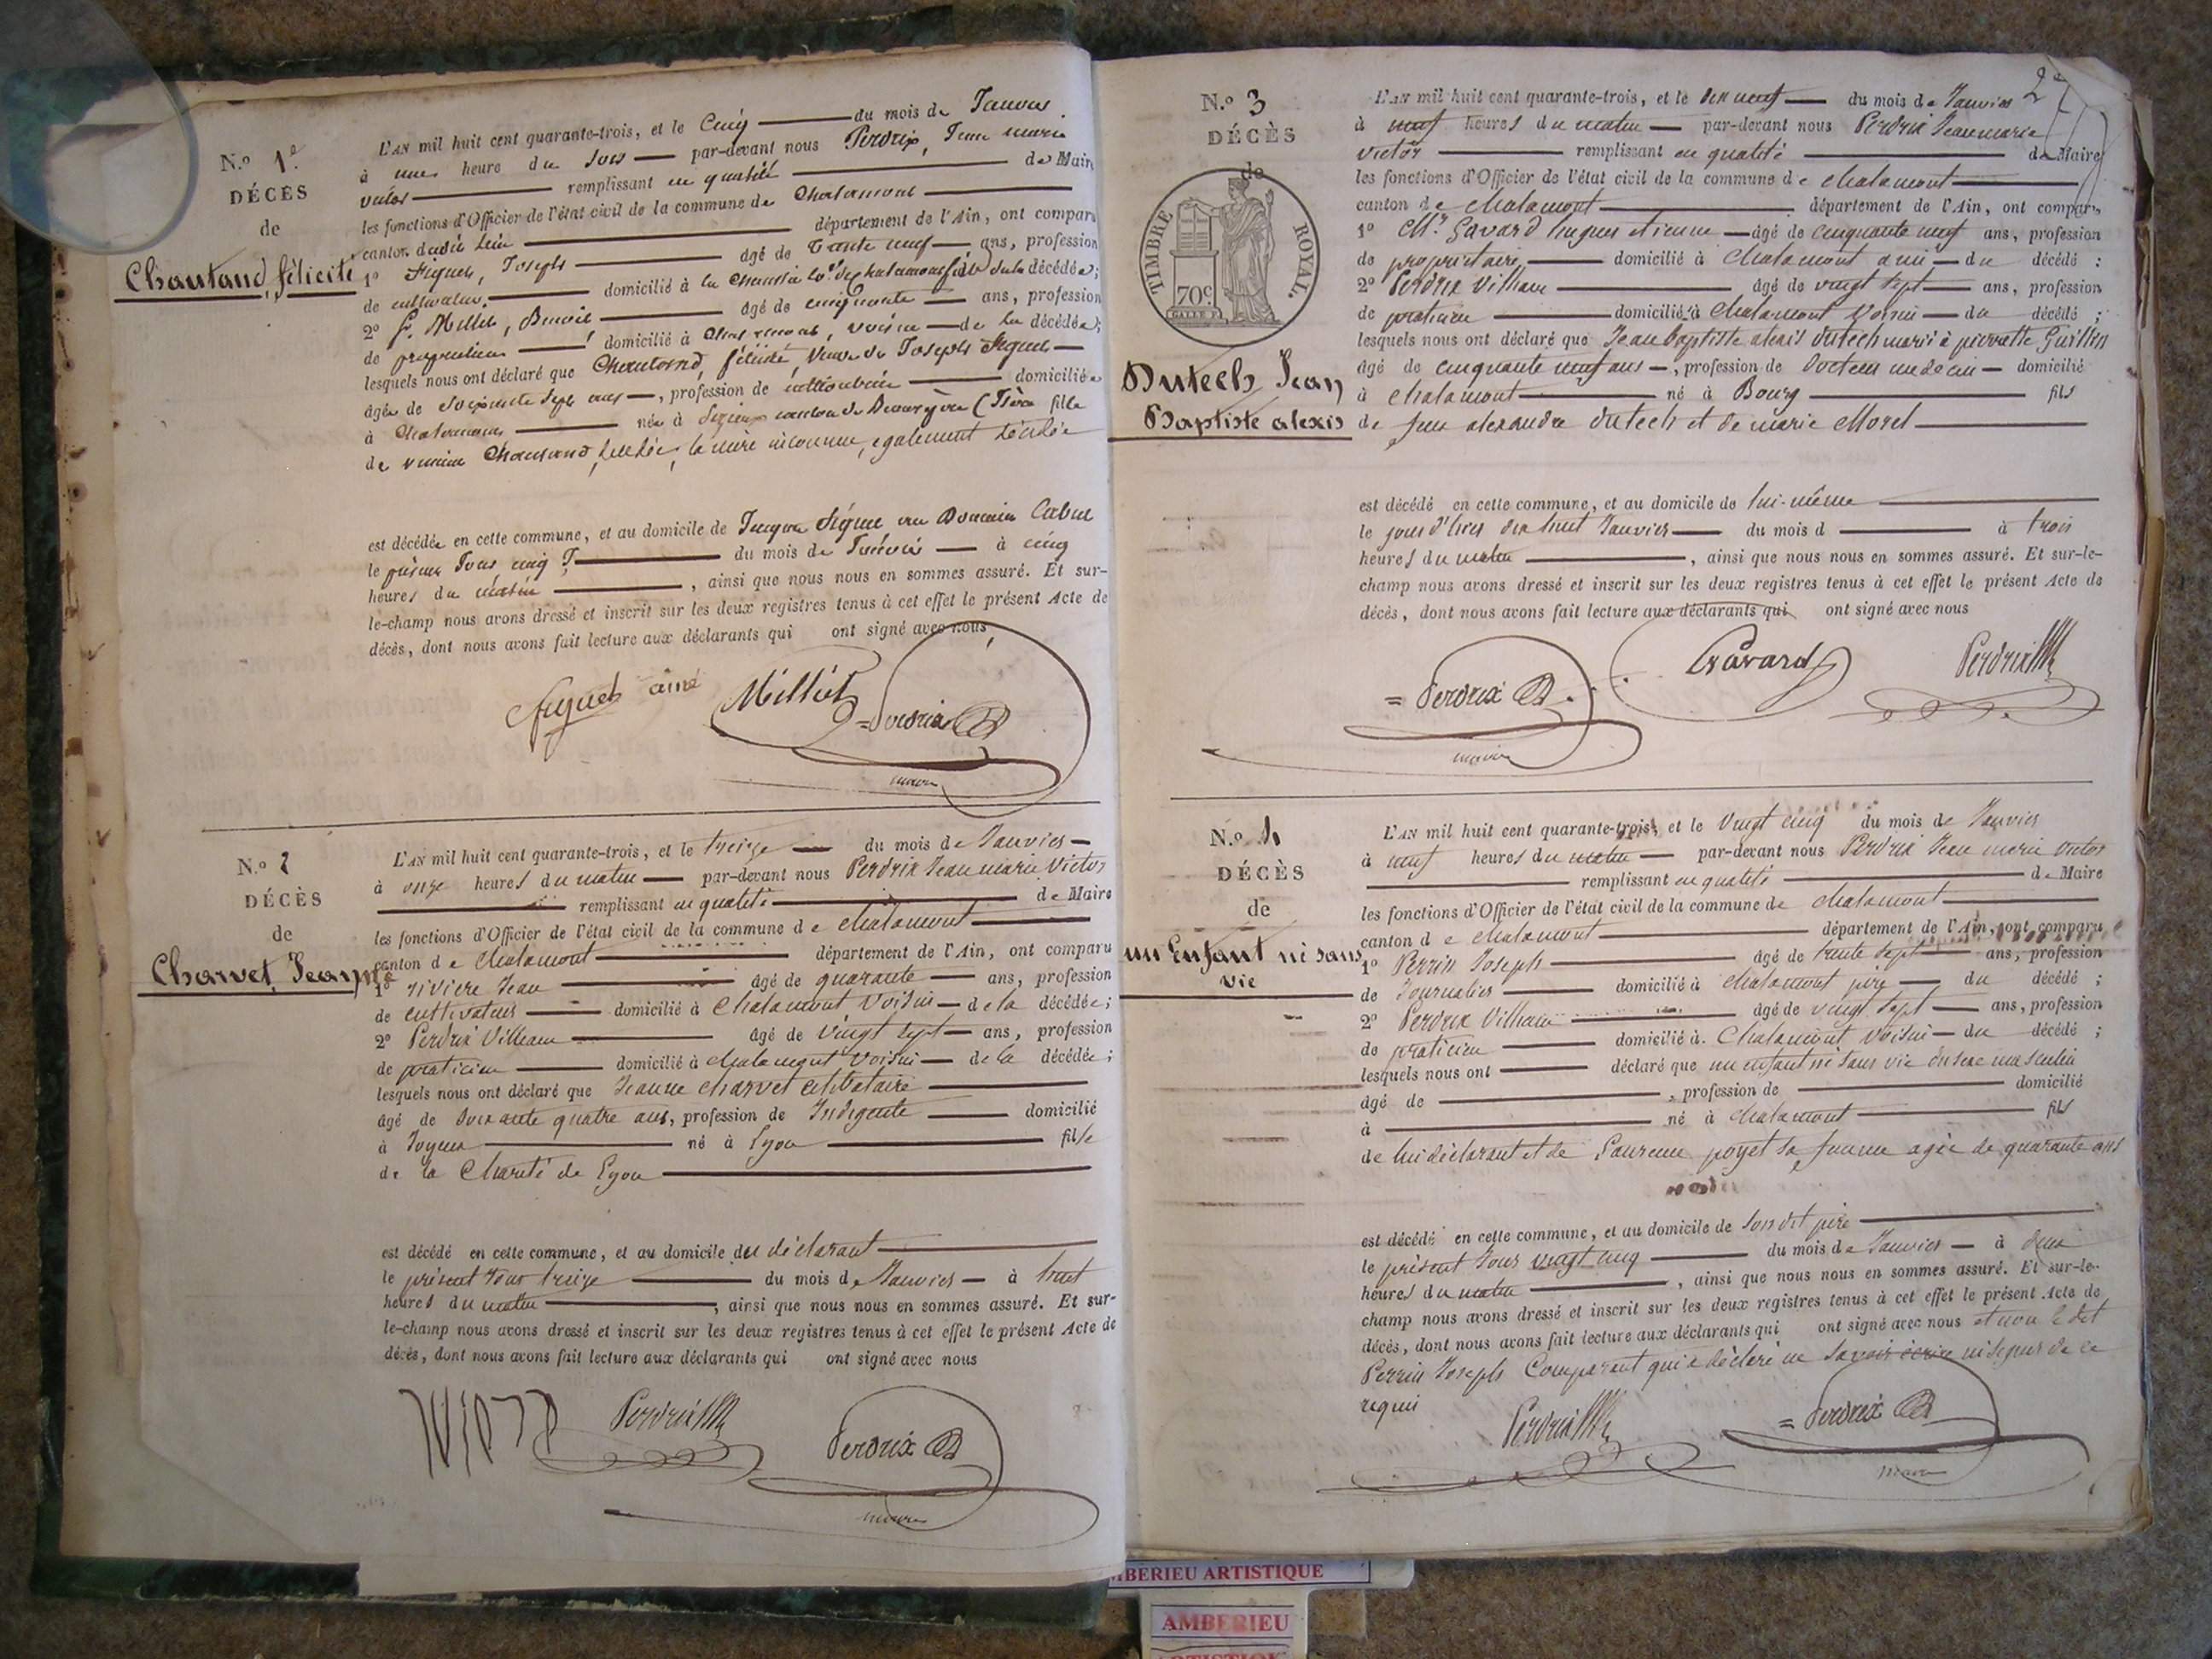 N.º 1er
DÉCÈS
de
Chautand, félicité
L'AN mil huit cent quarante-trois, et le Cinq du mois de Janvier
à une heure du soir par-devant nous Perdrix, Jean marie
victor remplissant en qualité de Maire
les fonctions d'Officier de l'état civil de la commune de Chalamont
canton dudit lieu département de l'Ain, ont comparu
1º Joseph âgé de trente neuf ans, profession
de cultivateur, domicilié à la décédée;
2º Millet, Benoit âgé de cinquante ans, profession
de propriétaire domicilié à Chalamont, voisin de la décédée;
lesquels nous ont déclaré que félicité, veuve de Joseph
âgée de soixante sept ans, profession de domiciliée
à Chalamont née à canton de fille
de Chautand, décédé, la mère inconnue, également décédée
est décédée en cette commune, et au domicile de au Domaine
le présent Jour cinq du mois de Janvier à cinq
heures du matin, ainsi que nous nous en sommes assuré. Et sur-
le-champ nous avons dressé et inscrit sur les deux registres tenus à cet effet le présent Acte de
décès, dont nous avons fait lecture aux déclarants qui ont signé avec nous
ainé Milliet = Perdrix
maire
N.º 2
DÉCÈS
de
Charvet, Jeanne
L'AN mil huit cent quarante-trois, et le treize du mois de Janvier
à onze heures du matin par-devant nous Perdrix Jean marie Victor
remplissant en qualité de Maire
les fonctions d'Officier de l'état civil de la commune de chalamont
canton de chalamont département de l'Ain, ont comparu
1º riviere Jean âgé de quarante ans, profession
de cultivateur domicilié à Chalamont Voisin de la décédée;
2º Perdrix Villiam âgé de vingt sept ans, profession
de praticien domicilié à chalamont Voisin de la décédée;
lesquels nous ont déclaré que Jeanne charvet celibataire
âgé de soixante quatre ans, profession de Indigente domicilié
à Joyeux né à Lyon fille
de la Charité de Lyon
est décédé en cette commune, et au domicile du déclarant
le présent Jour treize du mois de Janvier à huit
heures du matin, ainsi que nous nous en sommes assuré. Et sur-
le-champ nous avons dressé et inscrit sur les deux registres tenus à cet effet le présent Acte de
décès, dont nous avons fait lecture aux déclarants qui ont signé avec nous
Perdrix Perdrix
maire
2
N.º 3
DÉCÈS
de
TIMBRE ROYAL.
70c
Dutech Jean
Baptiste alexis
L'AN mil huit cent quarante-trois, et le dix neuf du mois de Janvier
à neuf heures du matin par-devant nous Perdrix Jean marie
victor remplissant en qualité de Maire
les fonctions d'Officier de l'état civil de la commune de chalamont
canton de chalamont département de l'Ain, ont comparu
1º Mr. Gavard hugues etienne âgé de cinquante neuf ans, profession
de propriétaire domicilié à Chalamont ami du décédé:
2º Perdrix Villiam âgé de vingt sept ans, profession
de praticien domicilié à Chalamont Voisin du décédé;
lesquels nous ont déclaré que Jean baptiste alexis dutech mari à pierrette Guillin
âgé de cinquante neuf ans, profession de Docteur médecin domicilié
à chalamont né à Bourg fils
de feu alexandre dutech et de marie Morel
est décédé en cette commune, et au domicile de lui-même
le jour d'hier dix huit Janvier du mois d à trois
heures du matin, ainsi que nous nous en sommes assuré. Et sur-le-
champ nous avons dressé et inscrit sur les deux registres tenus à cet effet le présent Acte de
décès, dont nous avons fait lecture aux déclarants qui ont signé avec nous
= Perdrix Gavard Perdrix
maire
N.º 4
DÉCÈS
de
un Enfant né sans
vie
L'AN mil huit cent quarante-trois, et le Vingt cinq du mois de Janvier
à neuf heures du matin par-devant nous Perdrix Jean marie victor
remplissant en qualité de Maire
les fonctions d'Officier de l'état civil de la commune de chalamont
canton de chalamont département de l'Ain, ont comparu
1º Perrin Joseph âgé de trente sept ans, profession
de Journalier domicilié à chalamont père du décédé;
2º Perdrix Villiam âgé de vingt sept ans, profession
de praticien domicilié à Chalamont voisin du décédé;
lesquels nous ont déclaré que un enfant né sans vie du sexe masculin
âgé de, profession de domicilié
à né à chalamont fils
de lui déclarant et de Laurence poyet sa femme agée de quarante ans
est décédé en cette commune, et au domicile de son dit père
le présent Jour vingt cinq du mois de Janvier à deux
heures du matin, ainsi que nous nous en sommes assuré. Et sur-le-
champ nous avons dressé et inscrit sur les deux registres tenus à cet effet le présent Acte de
décès, dont nous avons fait lecture aux déclarants qui ont signé avec nous et non le dit
Perrin Joseph Comparant qui a déclaré ne savoir écrire ni signer de ce
requis
Perdrix = Perdrix
maire
AMBERIEU ARTISTIQUE
AMBERIEU
ARTISTIQUE